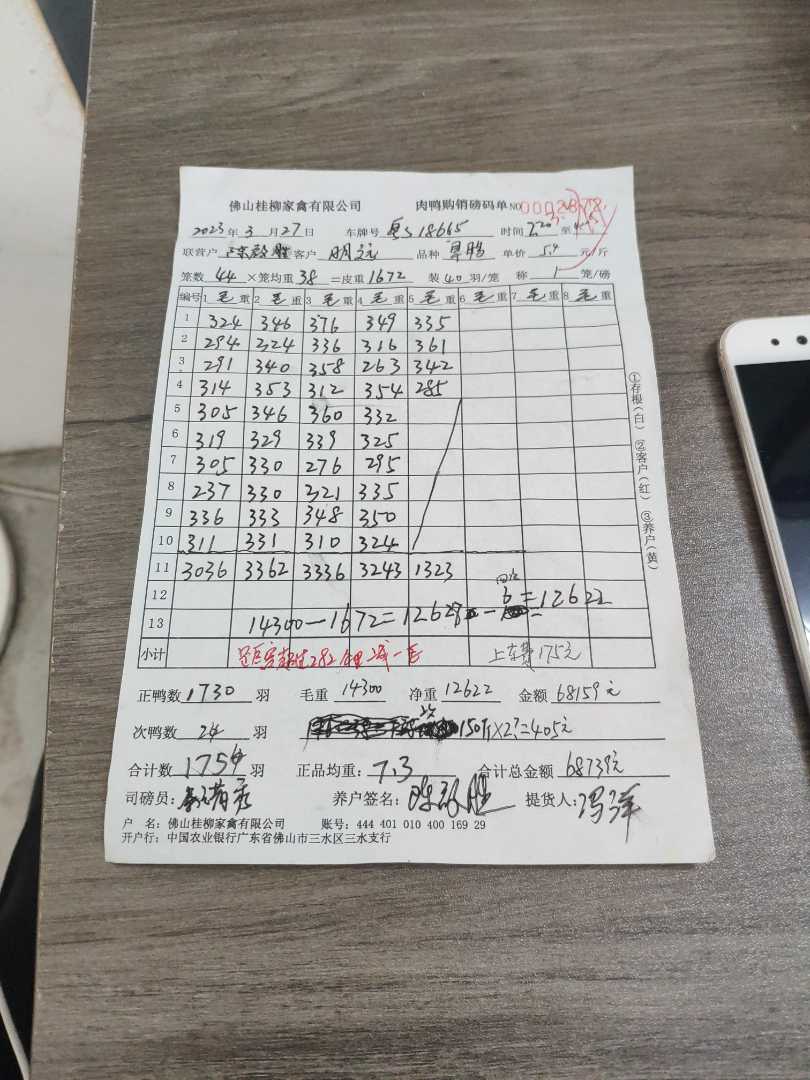 佛山桂柳家禽有限公司 肉鸭购销磅码单 NO 0002878
2023年3月27日 车牌号 粤S18665 时间 7.20 至
联营户 陈敬胜 客户 明记 品种 单价 5.4 元/斤
笼数 44 ×笼均重 38 =皮重 1672 装 40 羽/笼 称 1 笼/磅
编号 1 毛重 2 毛重 3 毛重 4 毛重 5 毛重 6 毛重 7 毛重 8 毛重
1 324 346 376 349 335
2 294 224 336 316 361
3 291 340 358 263 342
4 314 353 312 354 285
5 305 346 360 332
6 319 329 339 325
7 305 330 276 295
8 237 330 321 335
9 336 333 348 350
10 311 331 310 324
11 3036 3362 3336 3243 1323
12
13 14300-1672=12628-6=12622
小计 上车费175元
正鸭数 1730 羽 毛重 14300 净重 12622 金额 68159元
次鸭数 24 羽 150斤×2.7=405元
合计数 1754 羽 正品均重: 7.3 合计总金额 68739元
司磅员: 养户签名: 陈敬胜 提货人: 冯洋
户 名: 佛山桂柳家禽有限公司 账号: 444 401 010 400 169 29
开户行: 中国农业银行广东省佛山市三水区三水支行
①存根(白) ②客户(红) ③养户(黄)